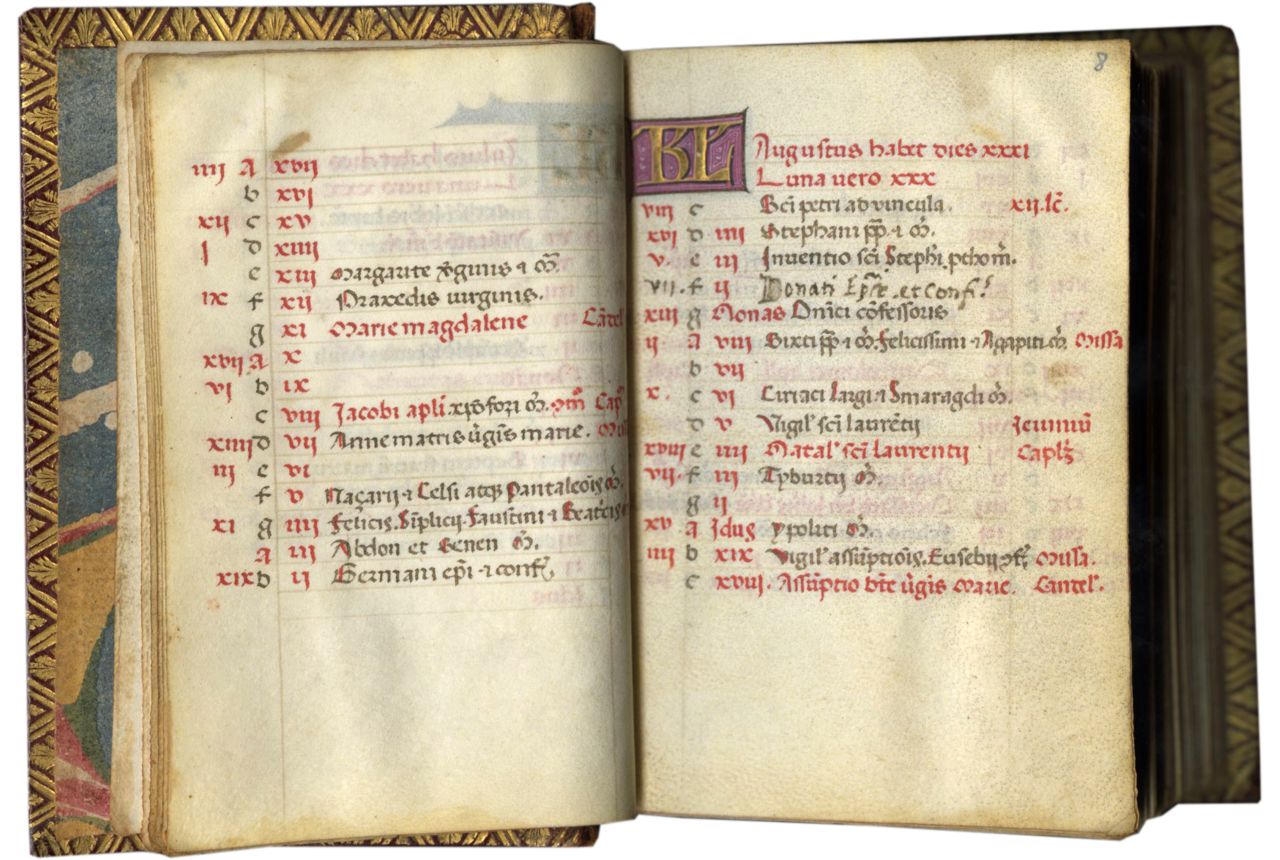 iiii A xvii
b xvi
xii c xv
i d xiiii
e xiii Margarite v̄ginis ⁊ m̄.
ix f xii Praxedis virginis.
g xi Marie magdalene Cātel
xvii A x
vi b ix
c viii Jacobi apl̄i xp̄ofori m̄. Cap
xiiii d vii Anne matris v̄gīs marie.
iii e vi
f v Naçarij ⁊ Celsi atqꝫ Pantaleōīs m̄.
xi g iiii Felicis. Sīplicij. Faustini ⁊ Beatr̄cis
a iii Abdon et Senen m̄.
xix b ii Germani ep̄i ⁊ conf.
8
KL Augustus habet dies xxxi
Luna vero xxx
viii c Bc̄i petri ad vincula. xii.lc̄.
xvi d iiii Stephani pp̄ ⁊ m̄.
v. e iii Inventio sc̄i Steph̄i. p̄thom̄.
vii. f ii Donati Ep̄i et Conf.
xiii g Nonas Dn̄ici cōfessoris
ii a viii Sixti pp̄ ⁊ m̄. Felicissimi ⁊ Agapiti m̄. Missa
b vii
x. c vi Ciriaci largi ⁊ Smaragdi m̄.
d v Vigil' sc̄i laurētij Jeiuniū
xviii e iiii Natal' sc̄i laurentij Caplꝫ
vii f iii Tyburtij m̄.
g ii
xv a Idus ypoliti m̄.
iiii b xix Vigil' assūptiōīs. Eusebij ↄf. Missa.
c xviii. Assūptio bt̄e v̄gis Marie. Cantel'.